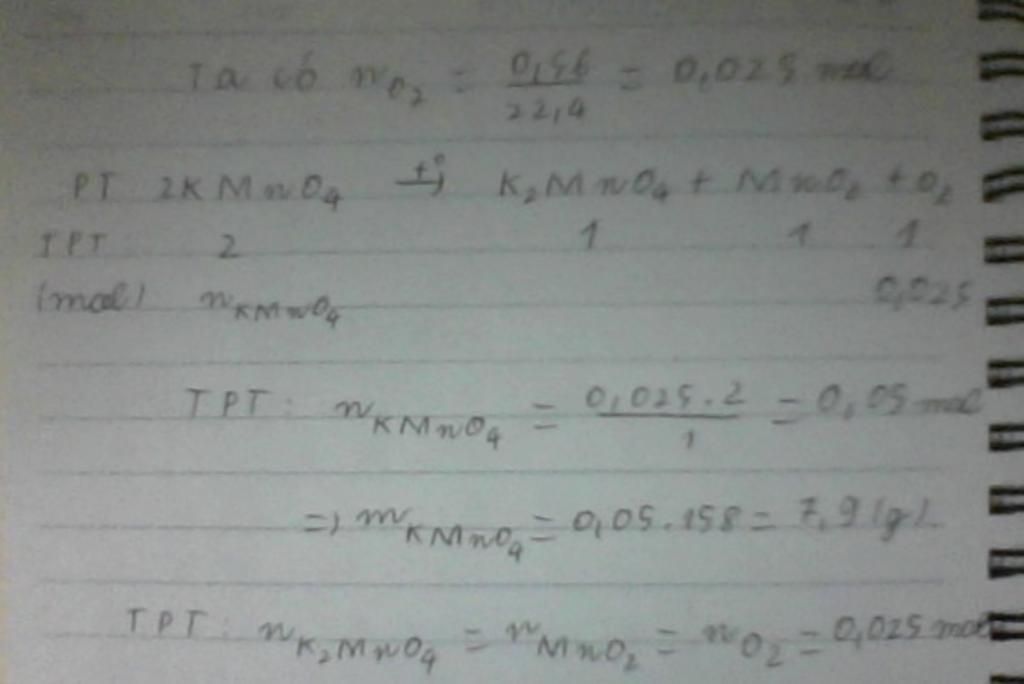 Ta có nO2 = 0,56/22,4 = 0,025 mol
PT 2KMnO4 →t° K2MnO4 + MnO2 + O2
TPT: 2 1 1 1
(mol) nKMnO4 0,025
TPT: nKMnO4 = 0,025.2/1 = 0,05 mol
=) mKMnO4 = 0,05.158 = 7,9 (g)
TPT: nK2MnO4 = nMnO2 = nO2 = 0,025 mol